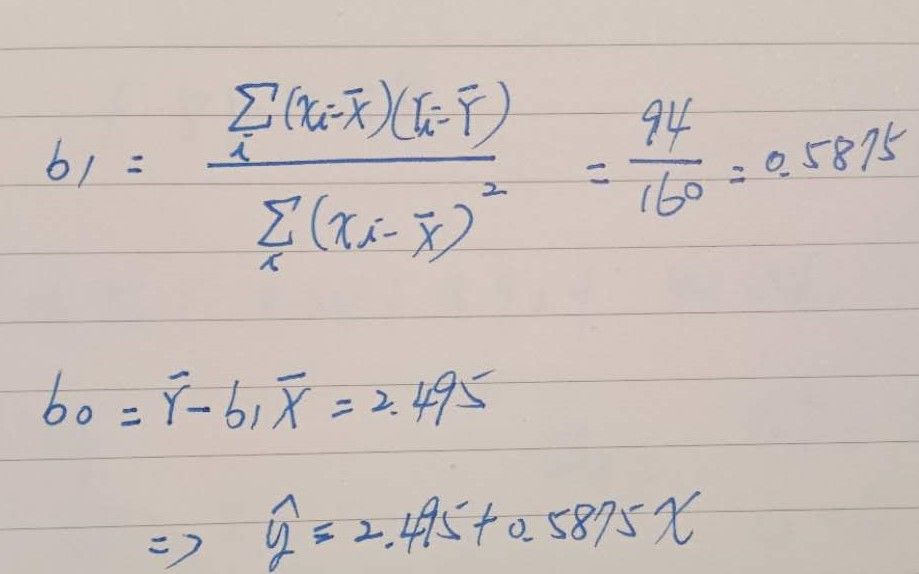 b₁ = Σᵢ(xᵢ-x̄)(Yᵢ-Ȳ) / Σᵢ(xᵢ-x̄)² = 94/160 = 0.5875
b₀ = Ȳ-b₁X̄ = 2.495
=> ŷ = 2.495+0.5875X